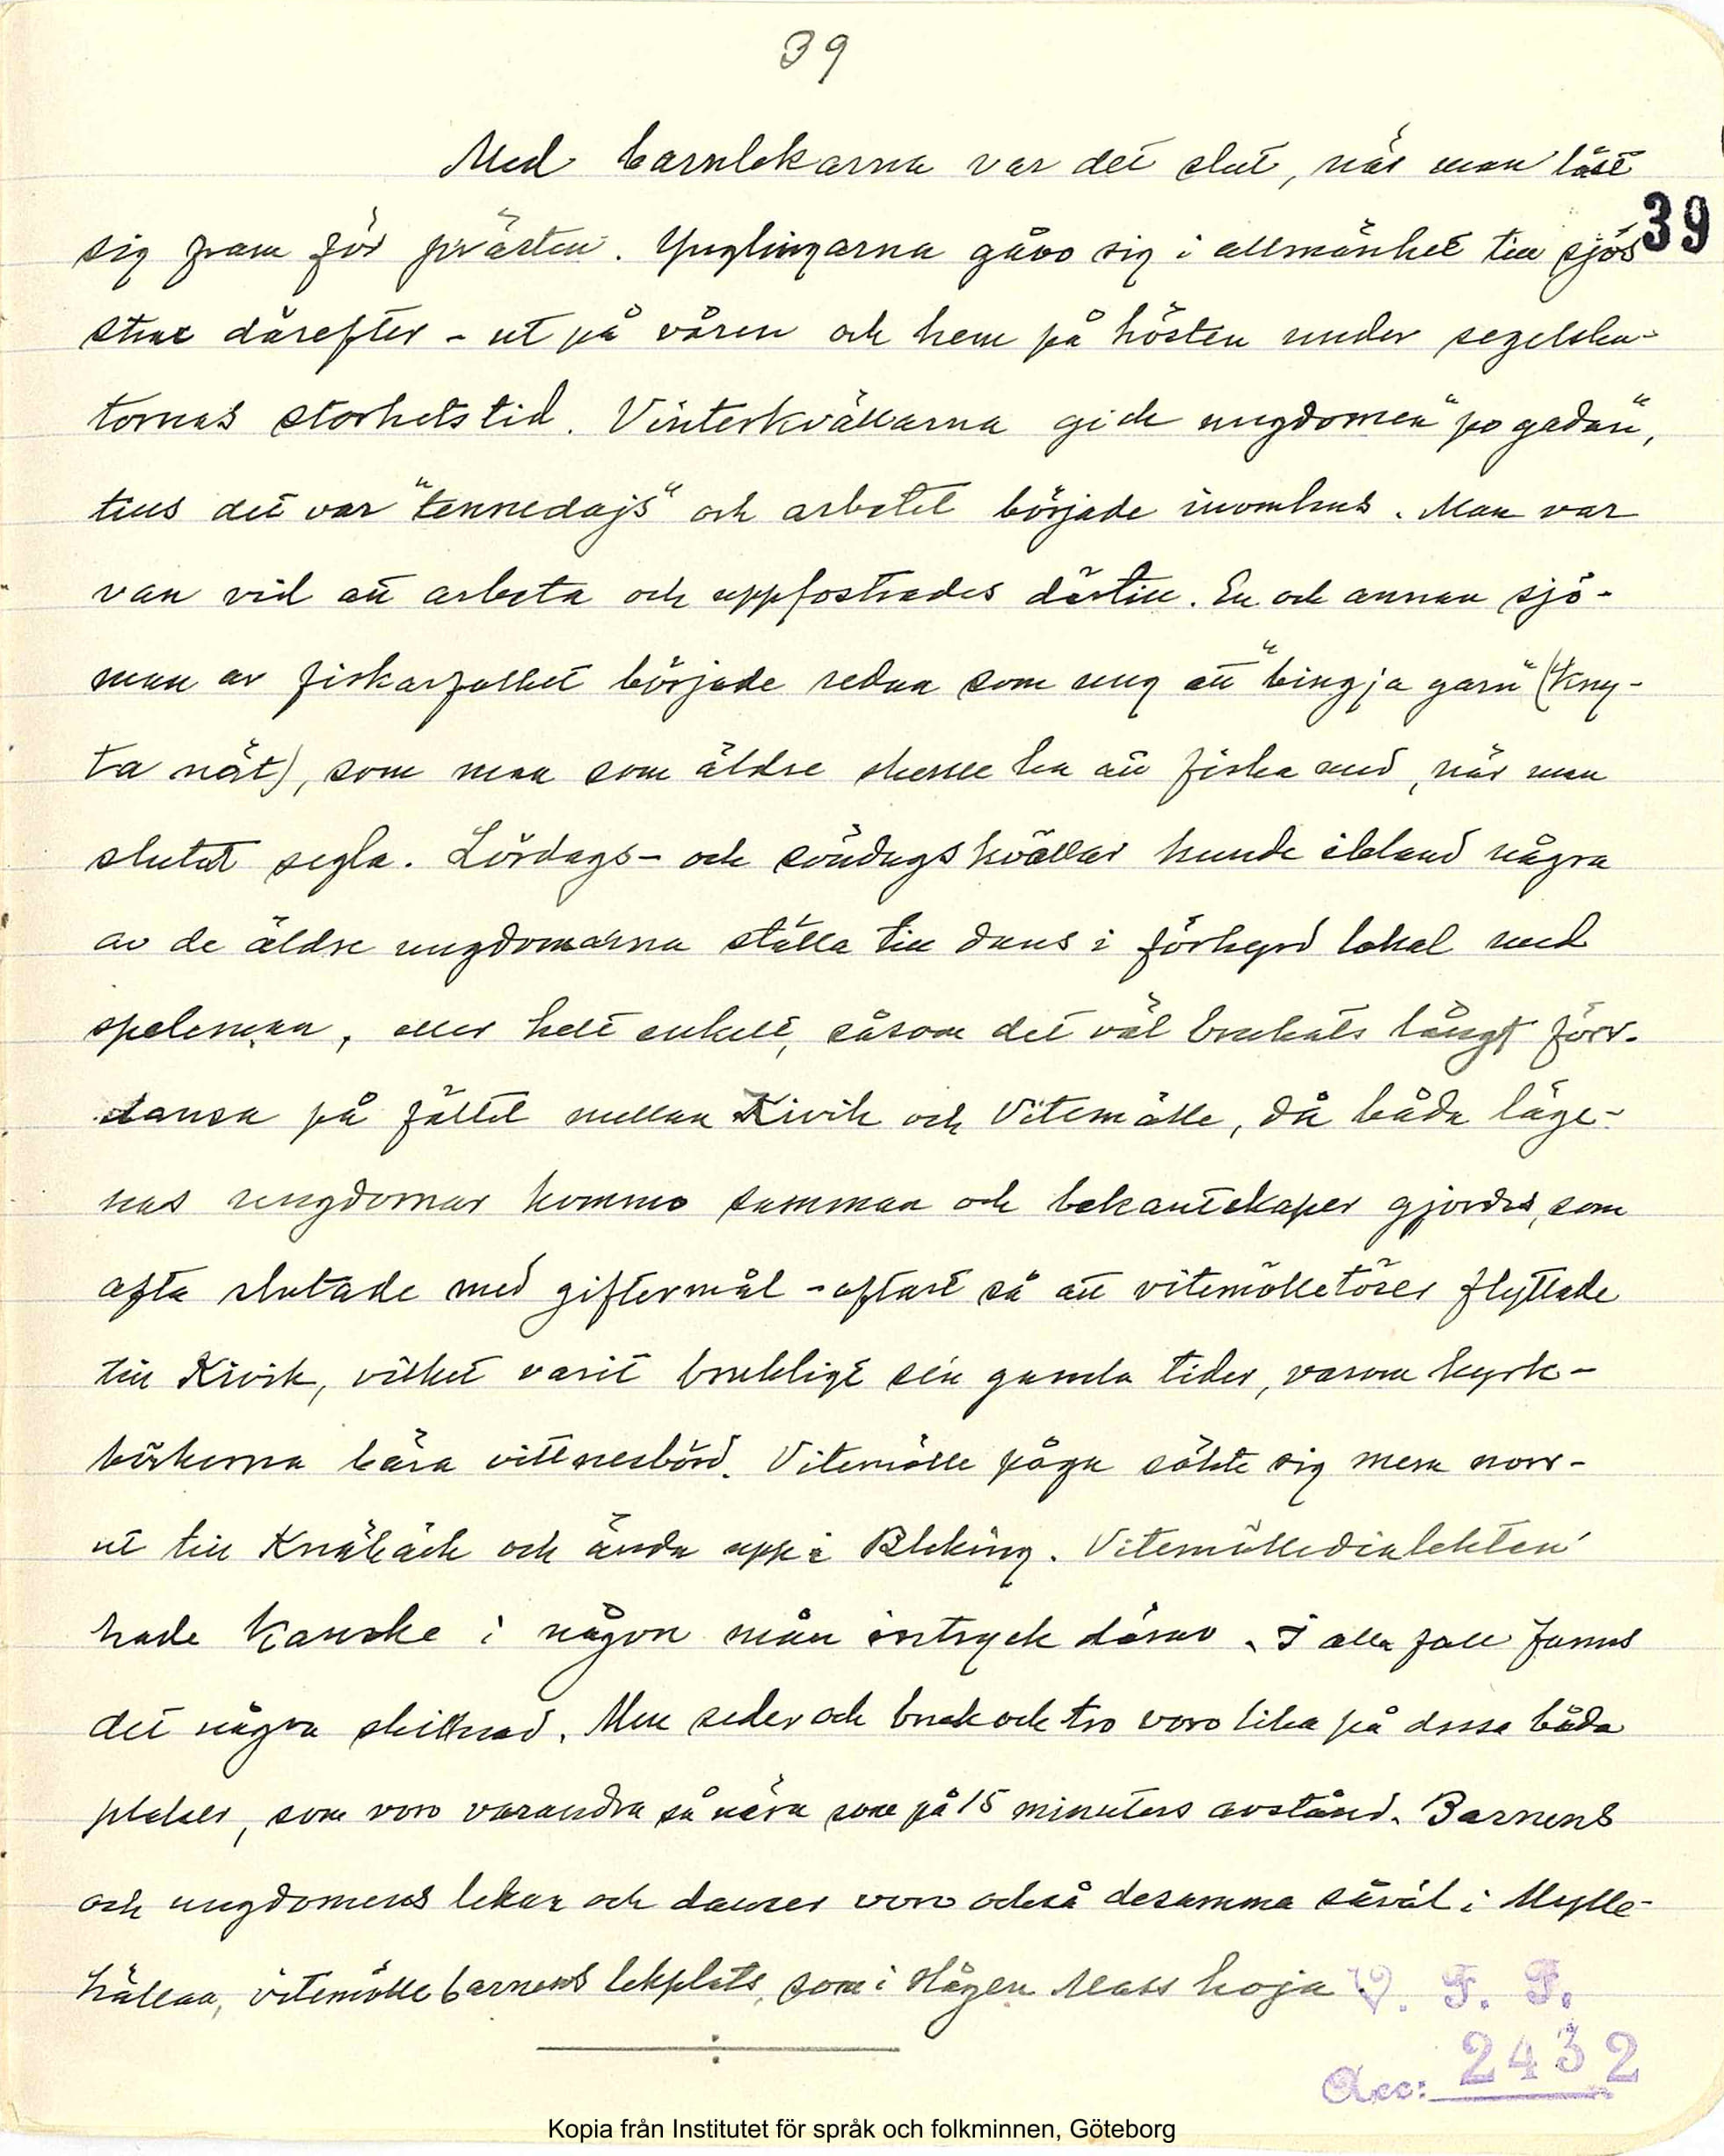 39
Med barnlekarna var det slut, när man läst
39
sig fram för prästen. Ynglingarna gåvo sig i allmänhet till sjös
strax därefter - ut på våren och hem på hösten under segelsku-
tornas storhetstid. Vinterkvällarna gick ungdomen "po gadan",
tills det var "tennedajs" och arbetet började inomhus. Man var
van vid att arbeta och uppfostrades därtill. En och annan sjö-
man av fiskarfolket började redan som ung att "bingja garn" (kny-
ta nät), som man som äldre skulle ha att fiska med, när man
slutat segla. Lördags- och söndagskvällar kunde ibland några
av de äldre ungdomarna ställa till dans i förhyrd lokal med
speleman, eller helt enkelt, såsom det väl brukats långt förr.
dansa på fältet mellan Kivik och Vitemölle, då båda läge-
nas ungdomar kommo samman och bekantskaper gjordes, som
ofta slutade med giftermål - oftast så att vitemölletöser flyttade
till Kivik, vilket varit brukligt sen gamla tider, varom kyrk-
böckerna bära vittnesbörd. Vitemölle påga sökte sig mera norr-
ut till Knäbäck och ända upp i Bleking. Vitemölledialekten
hade kanske i någon mån intryck därav. I alla fall fanns
det några skillnad. Men seder och bruk och tro voro lika på dessa båda
platser, som voro varandra så nära som på 15 minuters avstånd. Barnens
och ungdomens lekar och danser voro också desamma såväl i Mylle-
hällan, vitemöllebarnens lekplats, som i Hågen Mass hoja
V. F. F.
Acc: 2432
Kopia från Institutet för språk och folkminnen, Göteborg